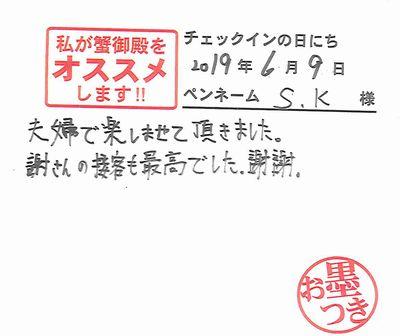 私が蟹御殿を
オススメ
します!!
チェックインの日にち
2019年6月9日
ペンネーム S.K 様
夫婦で楽しませて頂きました。
謝さんの接客も最高でした。謝謝.
お墨
つき